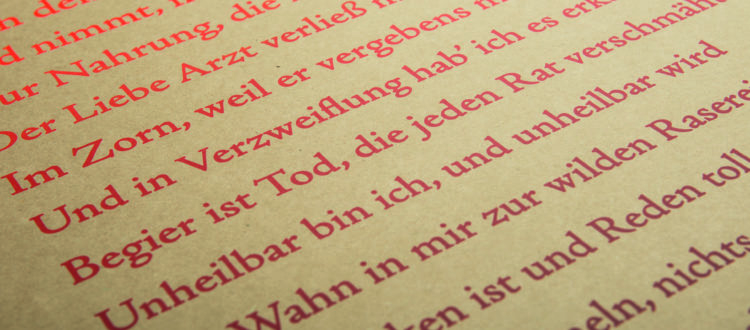 n de
d nimmt,
ur Nahrung, die
Der Liebe Arzt verließ
Im Zorn, weil er vergebens
Und in Verzweiflung hab’ ich es erk
Begier ist Tod, die jeden Rat verschmäh
Unheilbar bin ich, und unheilbar wird
Wahn in mir zur wilden Raserei
ken ist und Reden toll
eln, nichts